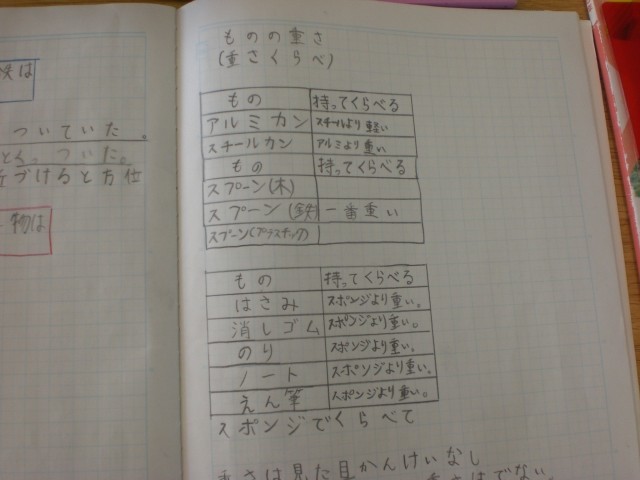 鉄は
ついていた。
ついた。
づけると方位
物は
ものの重さ
(重さくらべ)
もの 持ってくらべる
アルミカン スチールより軽い
スチールカン アルミより重い
もの 持ってくらべる
スプーン(木)
スプーン(鉄) 一番重い
スプーン(プラスチック)
もの 持ってくらべる
はさみ スポンジより重い。
消しゴム スポンジより重い。
のり スポンジより重い。
ノート スポンジより重い。
えん筆 スポンジより重い。
スポンジでくらべて
重さは見た目かんけいなし
重さはでない。